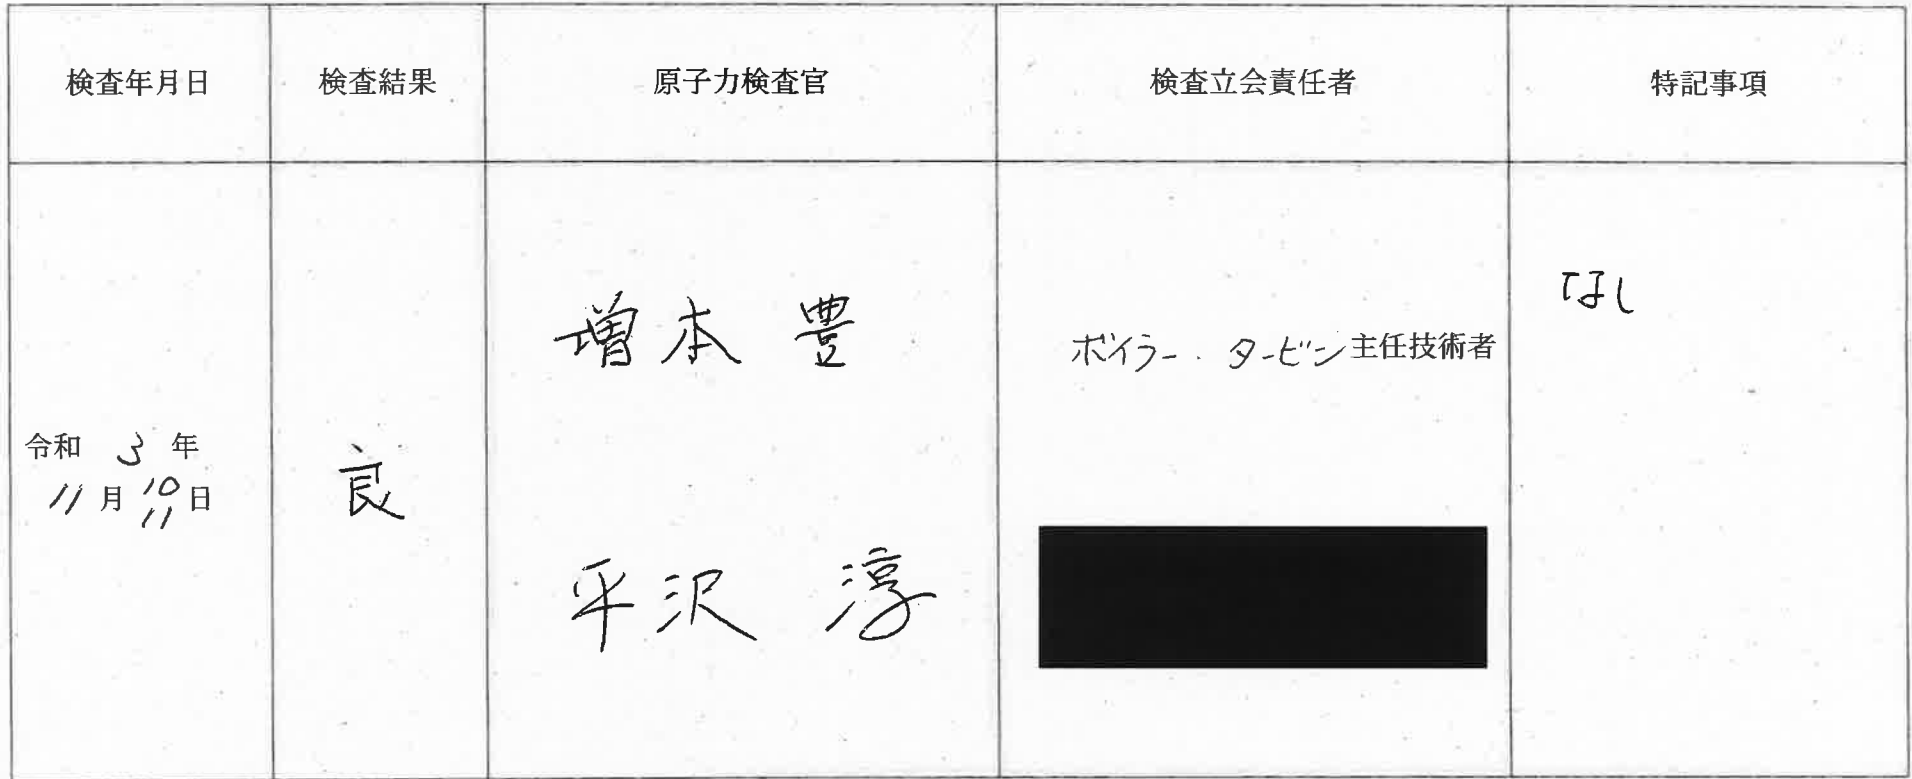 検査年月日 検査結果 原子力検査官 検査立会責任者 特記事項
令和 3 年
11 月 10 日
11
良
増本 豊
平沢 淳
ボイラー・タービン主任技術者
なし